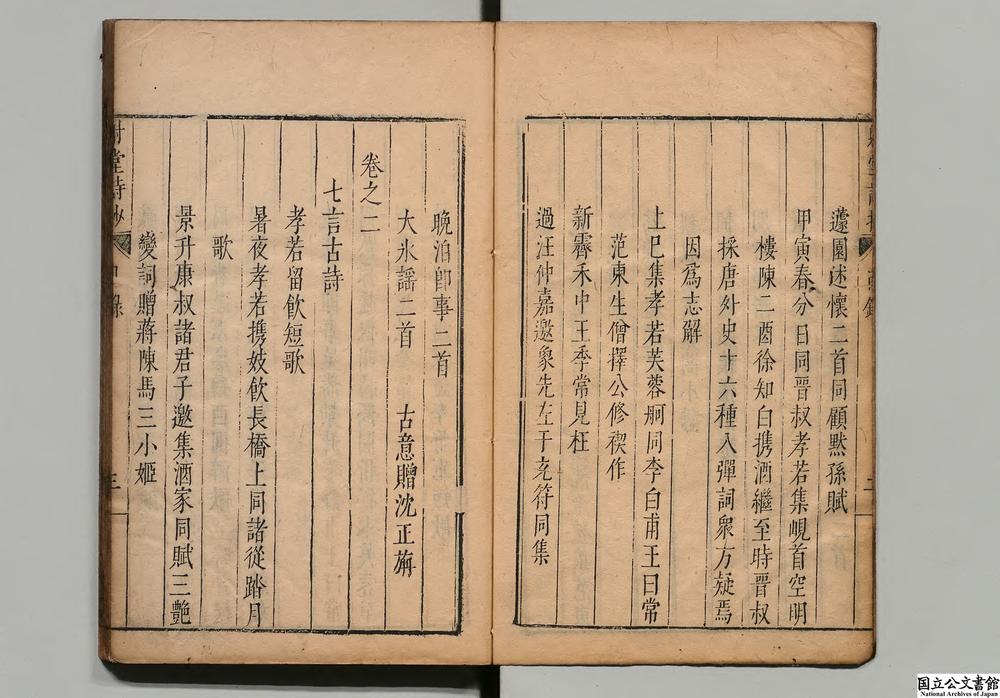 蘧園述懷二首同顧黙孫賦
甲寅春分日同晉叔孝若集峴首空明
樓陳二酉徐知白携酒繼至時晉叔
採唐外史十六種入彈詞衆方疑焉
因爲志解
上巳集孝若芙蓉舸同李白甫王曰常
范東生僧擇公修禊作
新霽禾中王季常見枉
過汪仲嘉邀象先左于充符同集
晩泊即事二首
大氷謠二首　古意贈沈正
卷之二
七言古詩
孝若留飲短歌
暑夜孝若携妓飲長橋上同諸從踏月
歌
景升康叔諸君子邀集酒家同賦三艷
變詞贈蔣陳馬三小姬
堂詩
三
国立公文書館
National Archives of Japan